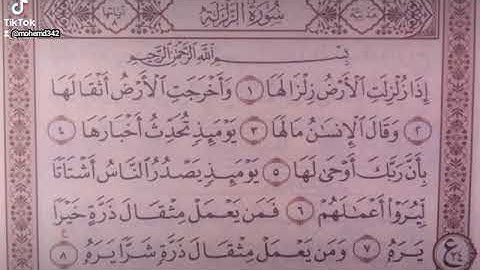 TikTok
@mohemd342
سُورَةُ الزَّلْزَلَةِ
بِسْمِ اللَّهِ الرَّحْمَٰنِ الرَّحِيمِ
إِذَا زُلْزِلَتِ الْأَرْضُ زِلْزَالَهَا ١ وَأَخْرَجَتِ الْأَرْضُ أَثْقَالَهَا
٢ وَقَالَ الْإِنسَٰنُ مَالَهَا ٣ يَوْمَئِذٍ تُحَدِّثُ أَخْبَارَهَا ٤
بِأَنَّ رَبَّكَ أَوْحَىٰ لَهَا ٥ يَوْمَئِذٍ يَصْدُرُ النَّاسُ أَشْتَاتًا
لِّيُرَوْا أَعْمَٰلَهُمْ ٦ فَمَن يَعْمَلْ مِثْقَالَ ذَرَّةٍ خَيْرًا
يَرَهُ ٧ وَمَن يَعْمَلْ مِثْقَالَ ذَرَّةٍ شَرًّا يَرَهُ ٨